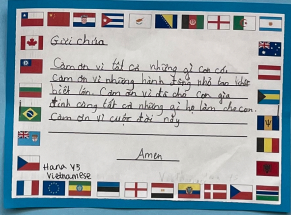 Gửi chúa
Cảm ơn vì tất cả những gì con có
Cảm ơn vì những hành động nhỏ làm khác
biệt lớn. Cảm ơn vì đã cho con gia
đình cùng tất cả những gì họ làm cho con.
Cảm ơn vì cuộc đời này
Amen
Hana Y3
Vietnamese